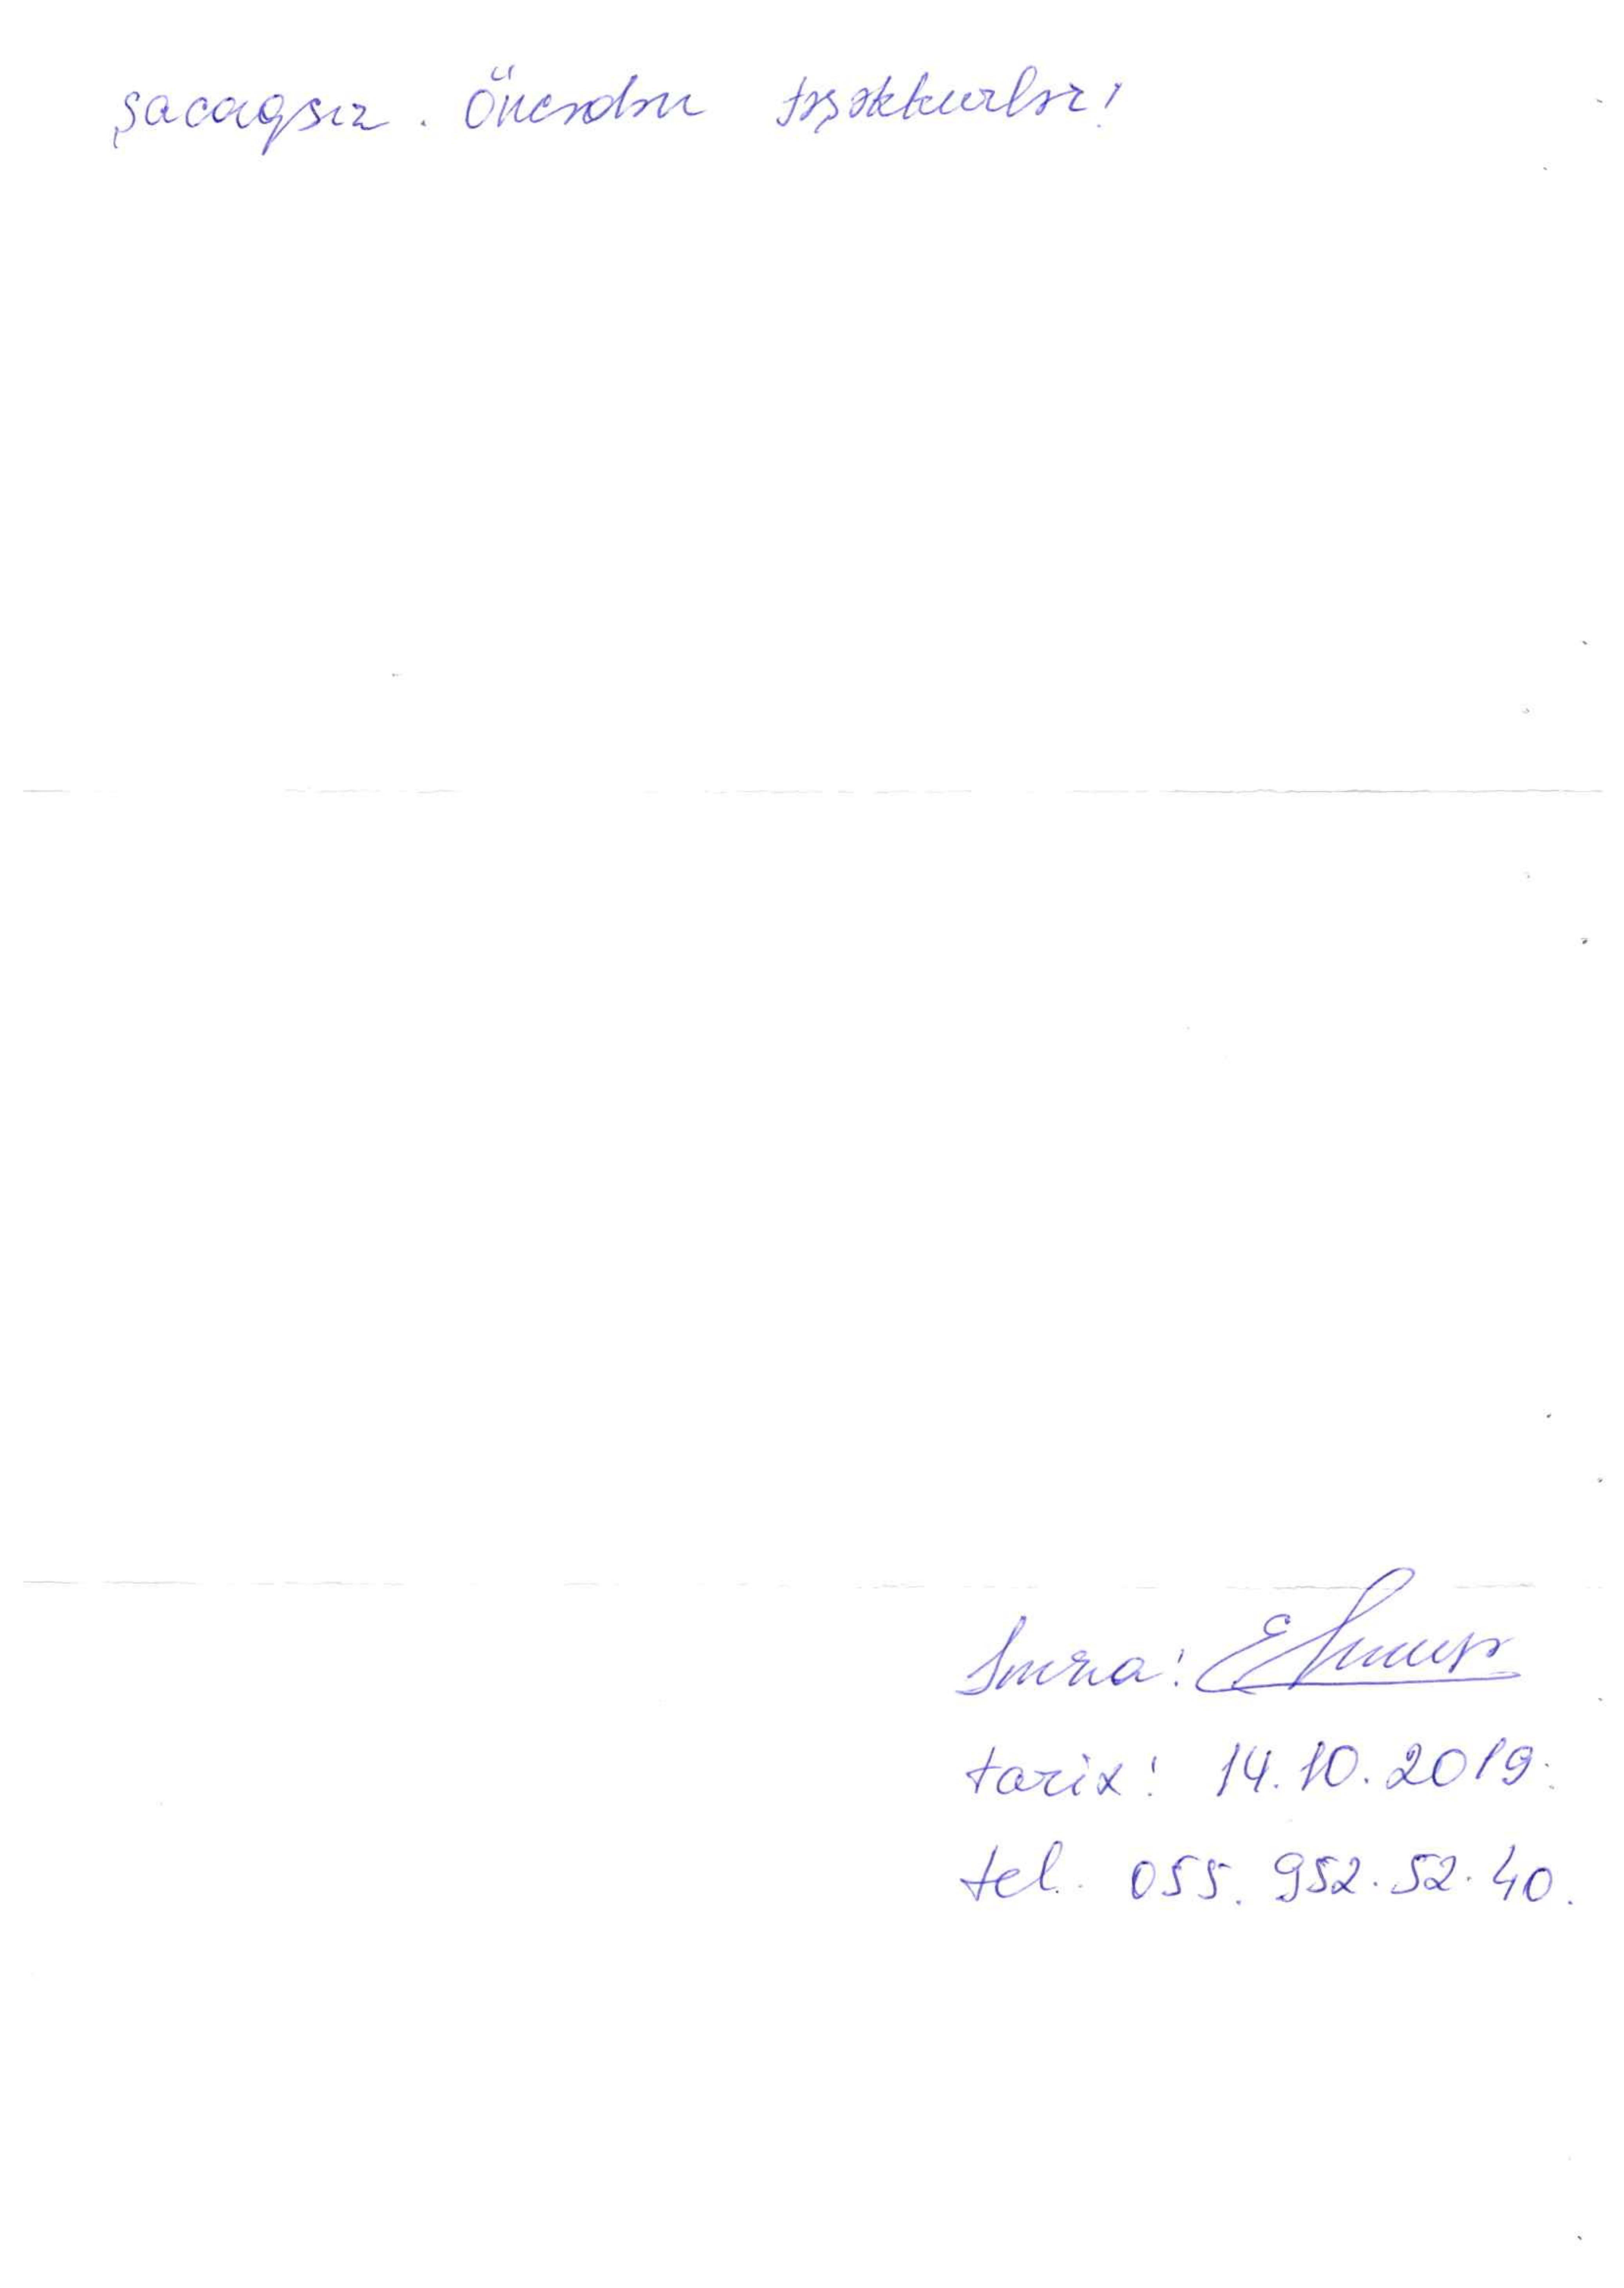 şacaqsız. Öncədən təşəkkurlər!
İmza:
tarix: 14.10.2019.
tel. 055. 952. 52. 40.